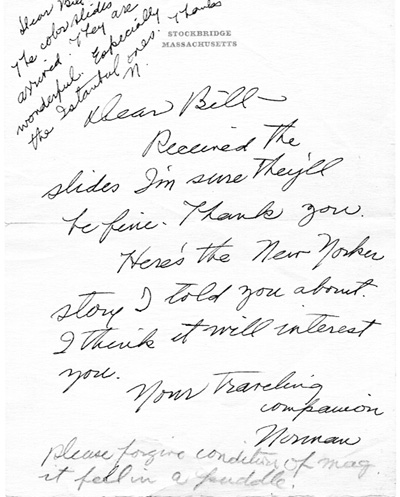 Dear Bill
The color slides
arrived. They are
wonderful. Especially
the Istanbul ones. Thanks
N.
STOCKBRIDGE
MASSACHUSETTS
Dear Bill—
Received the
slides I'm sure they'll
be fine. Thank you.
Here's the New Yorker
story I told you about.
I think it will interest
you.
Your Traveling
companion
Norman
please forgive condition of mag.
it fell in a puddle!